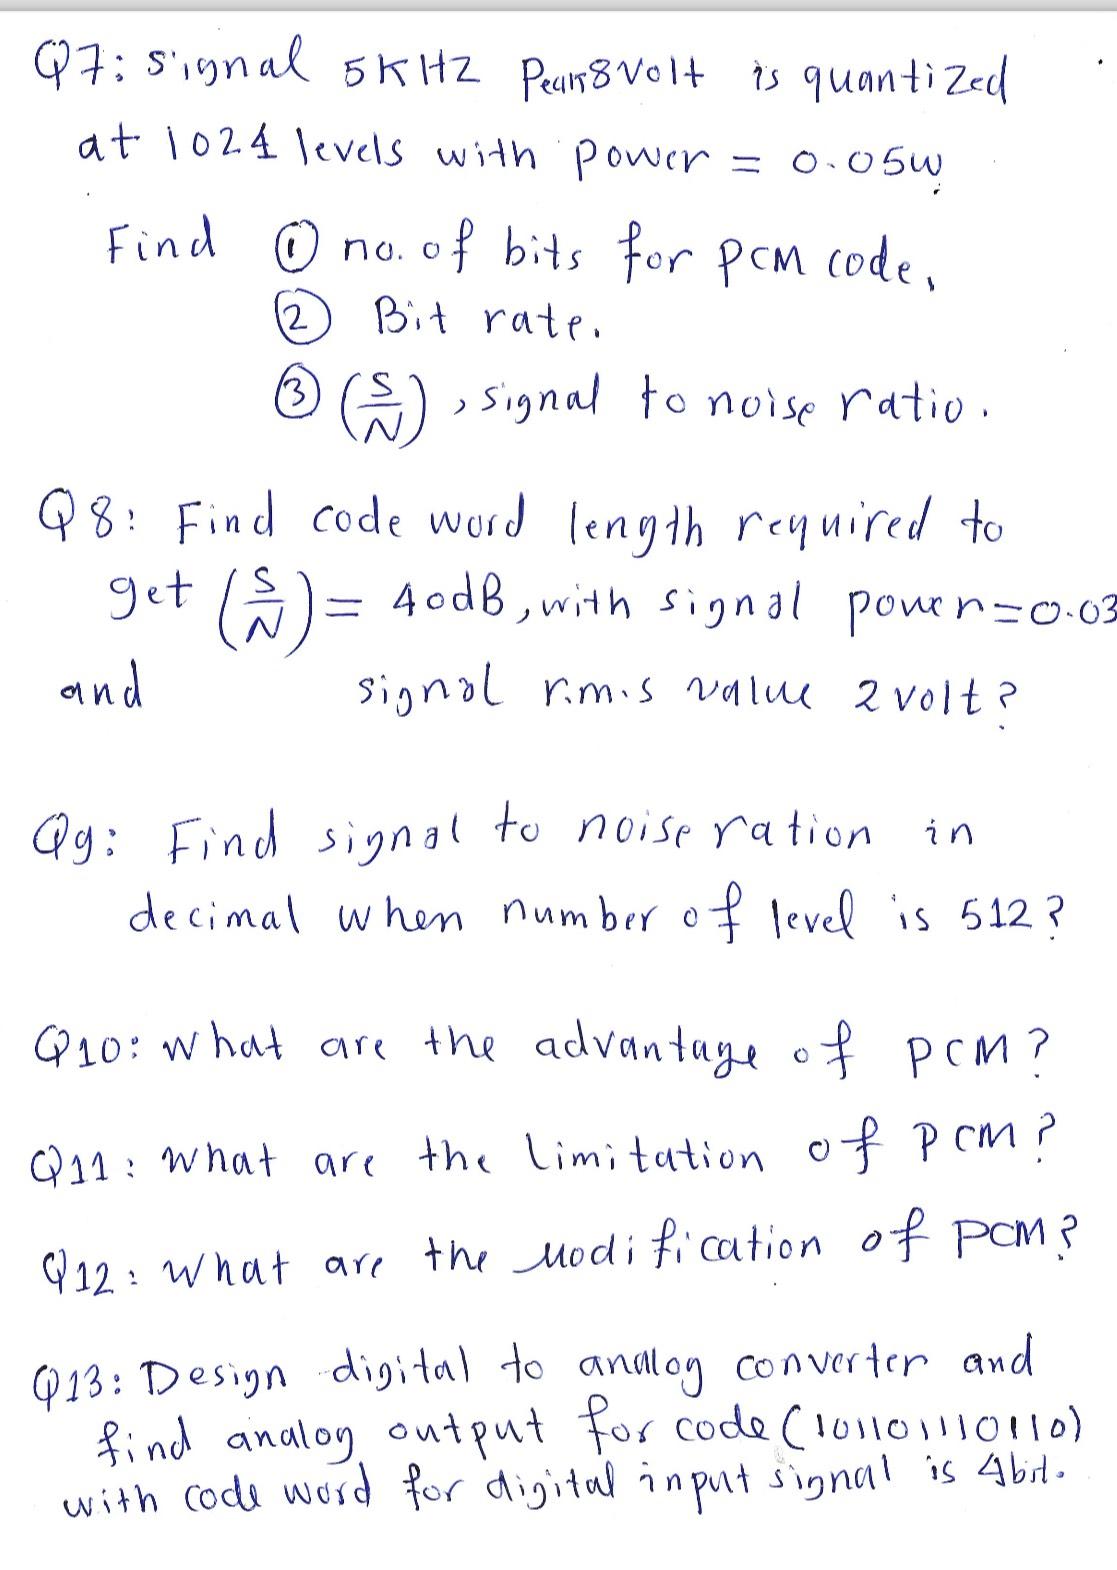 Q7: signal 5KHZ Peak 8 Volt is quantized
at 1024 levels with power = 0.05w
Find ① no. of bits for PCM code,
② Bit rate.
③ (S/N), signal to noise ratio.
Q8: Find code word length required to
get (S/N) = 40dB, with signal power=0.03
and signal r.m.s value 2 volt?
Q9: Find signal to noise ration in
decimal when number of level is 512?
Q10: What are the advantage of PCM?
Q11: What are the limitation of PCM?
Q12: What are the Modification of PCM?
Q13: Design digital to analog converter and
find analog output for code (101101110110)
with code word for digital input signal is 4bit.